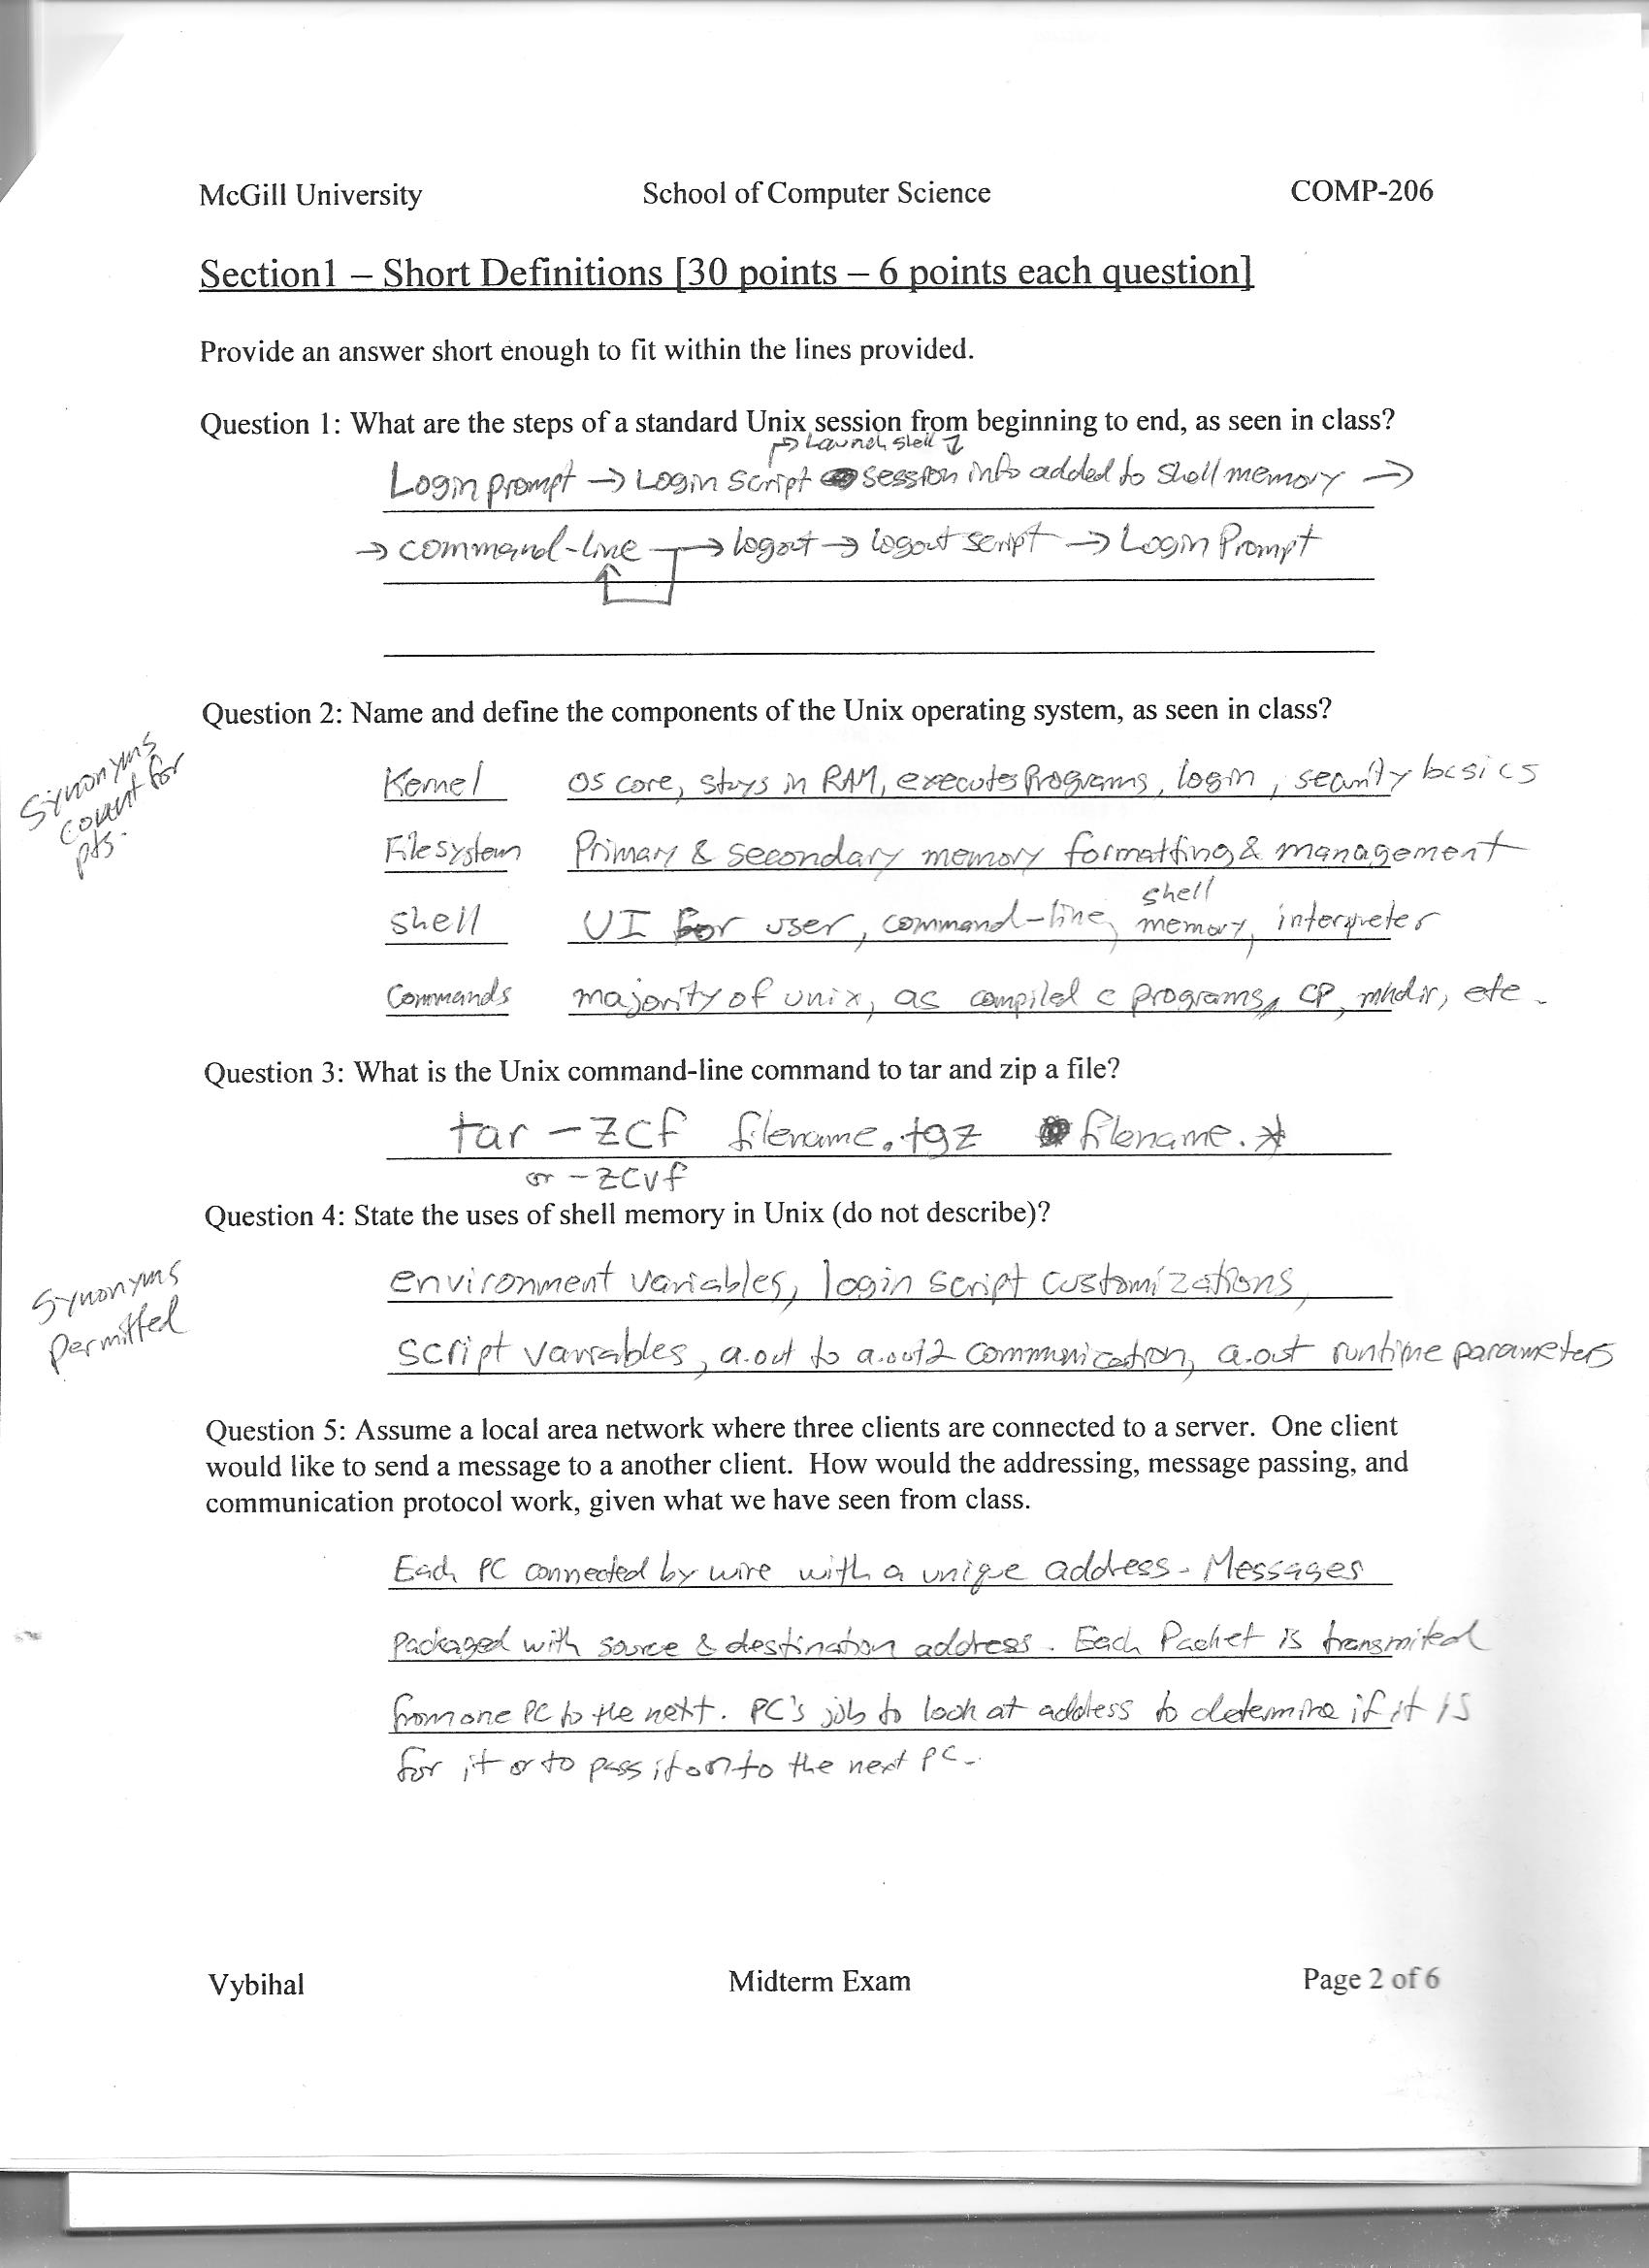 McGill University School of Computer Science COMP-206
Section1 – Short Definitions [30 points – 6 points each question]
Provide an answer short enough to fit within the lines provided.
Question 1: What are the steps of a standard Unix session from beginning to end, as seen in class?
→ Launch shell ↓
Login prompt → Login script session info added to shell memory →
→ command-line → logout → logout script → Login Prompt
Question 2: Name and define the components of the Unix operating system, as seen in class?
Synonyms
count for
pts.
Kernel OS core, stays in RAM, executes programs, login, security basics
Filesystem Primary & secondary memory formatting & management
shell
shell UI for user, command-line, memory, interpreter
Commands majority of unix, as compiled c programs, cp, mkdir, etc.
Question 3: What is the Unix command-line command to tar and zip a file?
tar -zcf filename.tgz filename.*
or -zcvf
Question 4: State the uses of shell memory in Unix (do not describe)?
Synonyms
permitted
environment variables, login script customizations,
script variables, a.out to a.out2 communication, a.out runtime parameters
Question 5: Assume a local area network where three clients are connected to a server. One client
would like to send a message to a another client. How would the addressing, message passing, and
communication protocol work, given what we have seen from class.
Each PC connected by wire with a unique address. Messages
packaged with source & destination address. Each Packet is transmited
from one PC to the next. PC's job to look at address to determine if it is
for it or to pass it on to the next PC.
Vybihal Midterm Exam Page 2 of 6